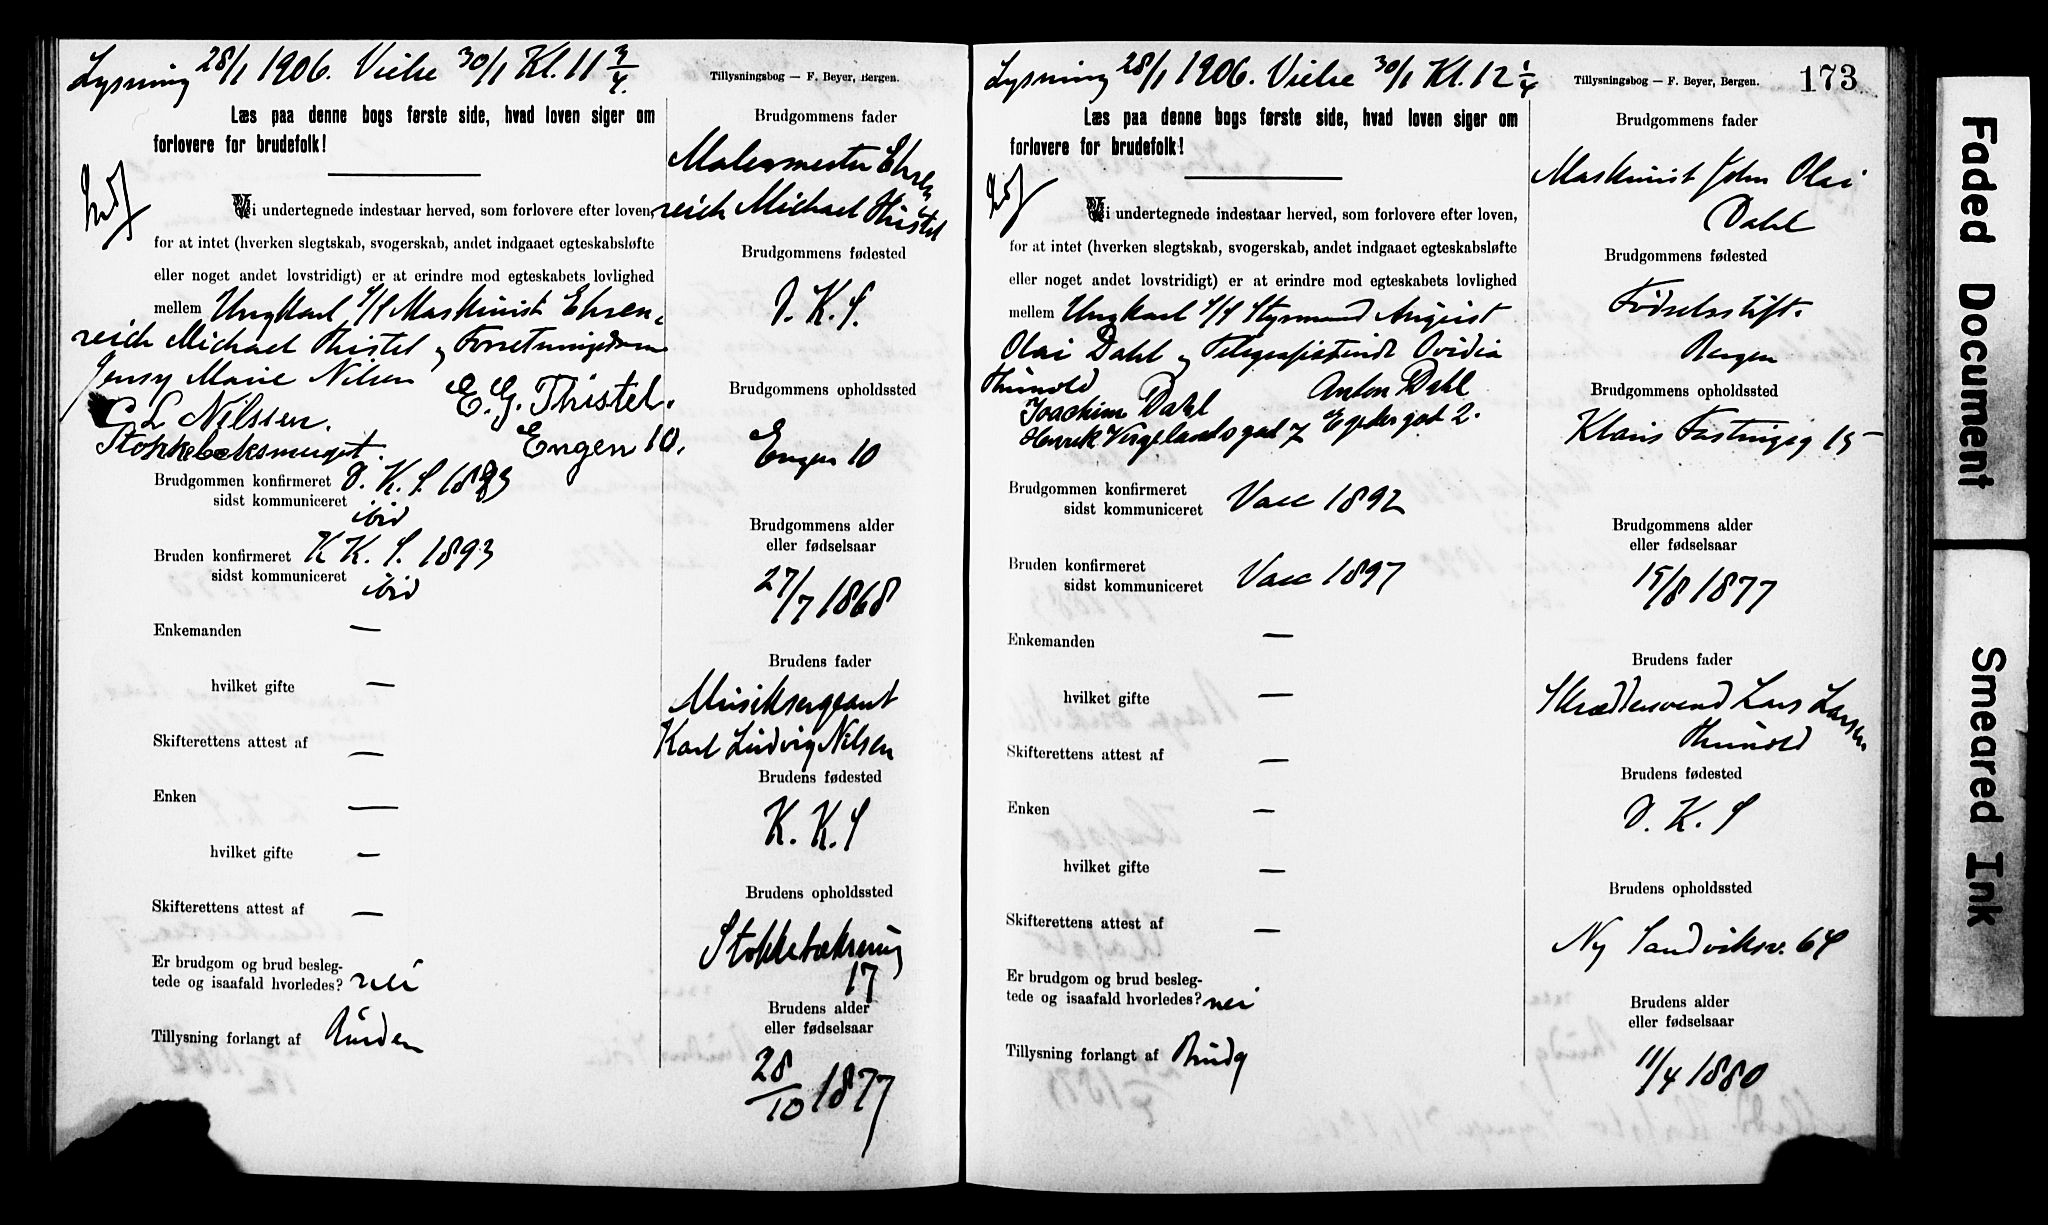 Lysning 28/1 1906. Vielse 30/1 Kl. 11 3/4.
Tillysningsbog — F. Beyer, Bergen.
Læs paa denne bogs første side, hvad loven siger om
forlovere for brudefolk!
Vi undertegnede indestaar herved, som forlovere efter loven,
for at intet (hverken slegtskab, svogerskab, andet indgaaet egteskabsløfte
eller noget andet lovstridigt) er at erindre mod egteskabets lovlighed
mellem Ungkarl s/s Maskinist Ehren-
reich Michael Thistel og Forretningsdame
Jensy Marie Nilsen
E. G. Thistel.
C L Nilssen.
Engen 10.
Brudgommen konfirmeret D. K. S. 1883
sidst kommuniceret ibid
Bruden konfirmeret K K. S. 1893
sidst kommuniceret ibid
Enkemanden —
hvilket gifte —
Skifterettens attest af —
Enken —
hvilket gifte —
Skifterettens attest af —
Er brudgom og brud besleg-
tede og isaafald hvorledes? nei
Tillysning forlangt af Bruden
Brudgommens fader
Malermester Ehren
reich Michael Thistel
Brudgommens fødested
D. K. S.
Brudgommens opholdssted
Engen 10
Brudgommens alder
eller fødselsaar
27/7 1868
Brudens fader
Musiksergeant
Karl Ludvig Nilsen
Brudens fødested
K. K. S
Brudens opholdssted
17
Brudens alder
eller fødselsaar
28/10 1877
Lysning 28/1 1906. Vielse 30/1 Kl. 12 1/4
Tillysningsbog — F. Beyer, Bergen.
173
Læs paa denne bogs første side, hvad loven siger om
forlovere for brudefolk!
Vi undertegnede indestaar herved, som forlovere efter loven,
for at intet (hverken slegtskab, svogerskab, andet indgaaet egteskabsløfte
eller noget andet lovstridigt) er at erindre mod egteskabets lovlighed
mellem Ungkarl s/s Styrmand August
Olai Dahl og Telegrafistinde Ovidia
Thunold
Joachim Dahl Anton Dahl
Henrik Vergelandsgad 7
Brudgommen konfirmeret
sidst kommuniceret Vacc 1892
Bruden konfirmeret
sidst kommuniceret Vacc 1897
Enkemanden —
hvilket gifte —
Skifterettens attest af —
Enken —
hvilket gifte —
Skifterettens attest af —
Er brudgom og brud besleg-
tede og isaafald hvorledes? nei
Tillysning forlangt af Brudg
Brudgommens fader
Maskinist John Olai
Dahl
Brudgommens fødested
Fødselsstift.
Bergen
Brudgommens opholdssted
Klaus Fastingsg 15
Brudgommens alder
eller fødselsaar
15/8 1877
Brudens fader
Skræddersvend Lars Larsen
Thunold
Brudens fødested
D. K. S
Brudens opholdssted
Ny Sandviksv. 64
Brudens alder
eller fødselsaar
11/4 1880
Faded Document
Smeared Ink